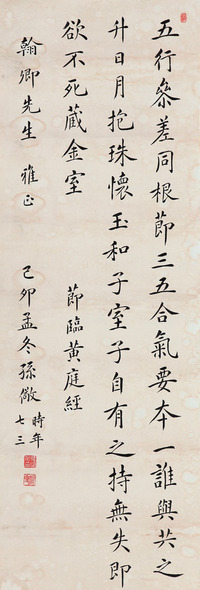 五行參差同根節三五合氣要本一誰與共之
升日月抱珠懷玉和子室子自有之持無失即
欲不死藏金室
節臨黃庭經
翰卿先生 雅正
己卯孟冬孫儆 時年七三